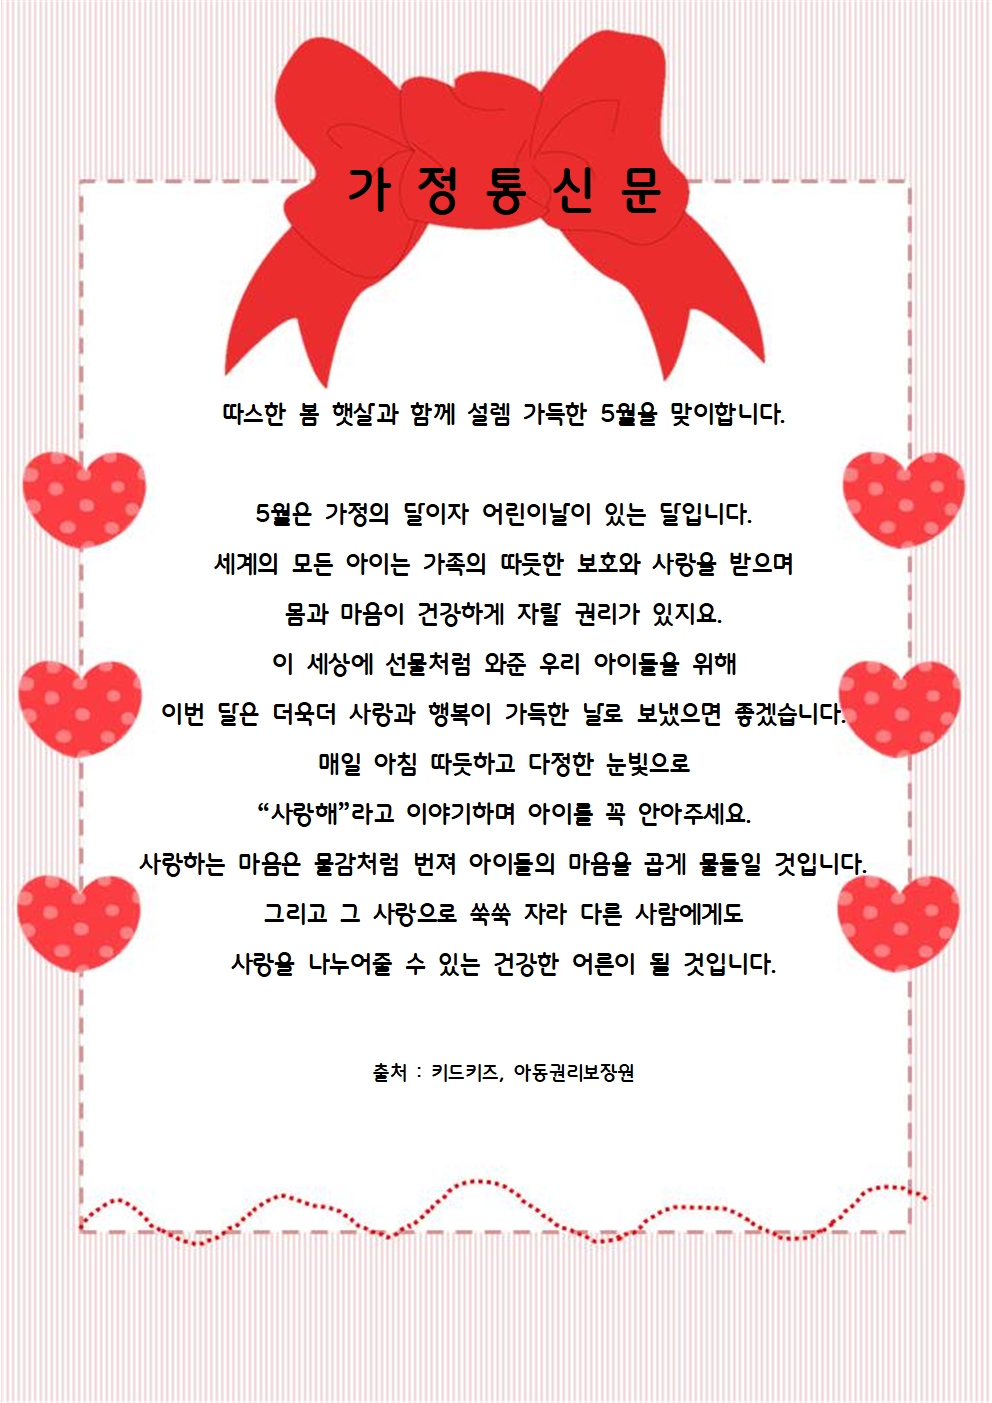 가 정 통 신 문
따스한 봄 햇살과 함께 설렘 가득한 5월을 맞이합니다.
5월은 가정의 달이자 어린이날이 있는 달입니다.
세계의 모든 아이는 가족의 따듯한 보호와 사랑을 받으며
몸과 마음이 건강하게 자랄 권리가 있지요.
이 세상에 선물처럼 와준 우리 아이들을 위해
이번 달은 더욱더 사랑과 행복이 가득한 날로 보냈으면 좋겠습니다.
매일 아침 따듯하고 다정한 눈빛으로
“사랑해”라고 이야기하며 아이를 꼭 안아주세요.
사랑하는 마음은 물감처럼 번져 아이들의 마음을 곱게 물들일 것입니다.
그리고 그 사랑으로 쑥쑥 자라 다른 사람에게도
사랑을 나누어줄 수 있는 건강한 어른이 될 것입니다.
출처 : 키드키즈, 아동권리보장원